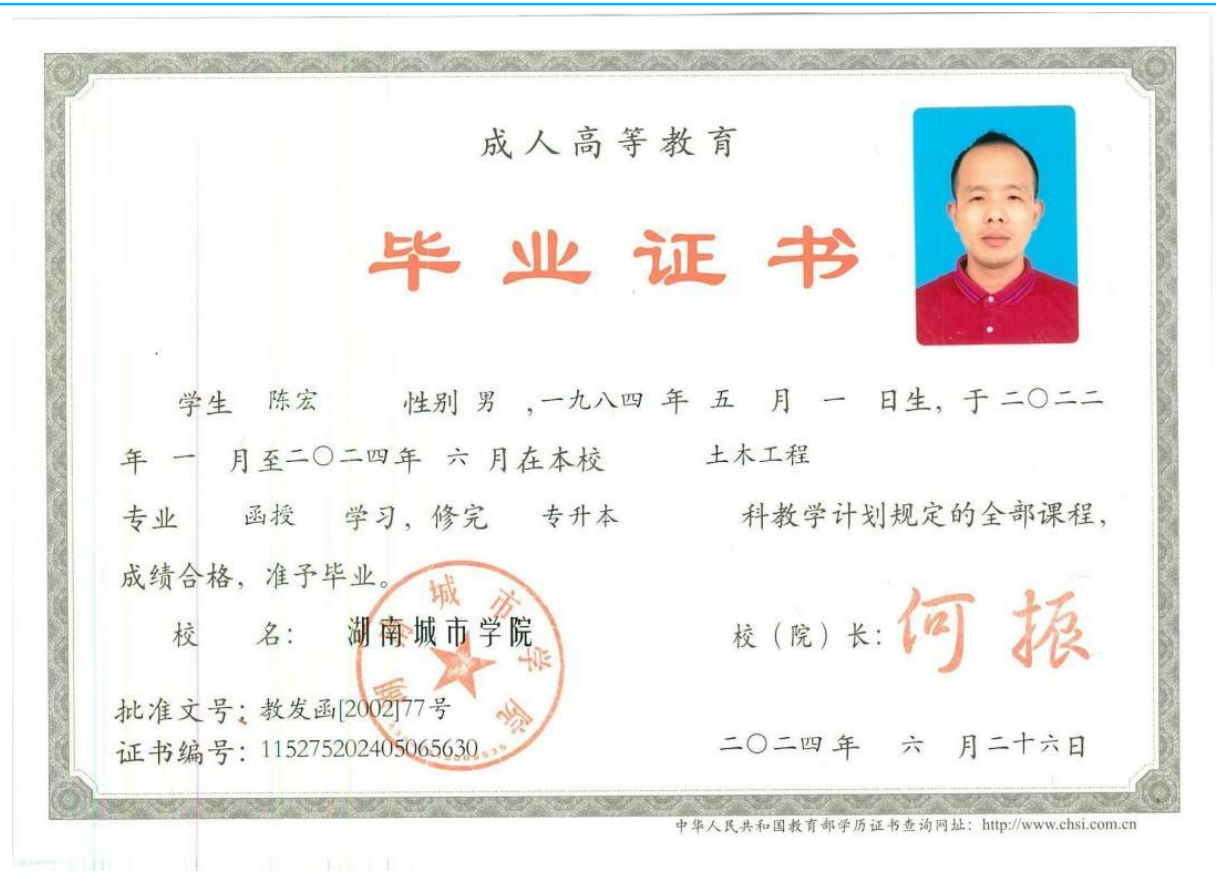 成人高等教育
毕业证书
学生 陈宏 性别 男 ,一九八四 年 五 月 一 日生, 于 二〇二二
年 一 月至二〇二四年 六 月在本校 土木工程
专业 函授 学习, 修完 专升本 科教学计划规定的全部课程,
成绩合格, 准予毕业。
校 名: 湖南城市学院
校(院)长: 何振
湖南城市学院
批准文号: 教发函[2002]77号
证书编号: 115275202405065630
二〇二四 年 六 月二十六日
中华人民共和国教育部学历证书查询网址: http://www.chsi.com.cn